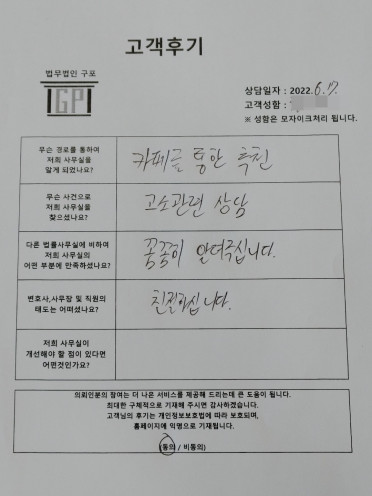 고객후기
법무법인 구포
GP
상담일자 : 2022. 6. 17.
고객성함 :
※ 성함은 모자이크처리 됩니다.
무슨 경로를 통하여
저희 사무실을
알게 되었나요?
카페를 통한 추천
무슨 사건으로
저희 사무실을
찾으셨나요?
고소관련 상담
다른 법률사무실에 비하여
저희 사무실의
어떤 부분에 만족하셨나요?
꼼꼼히 알려주십니다.
변호사,사무장 및 직원의
태도는 어떠셨나요?
친절하십니다.
저희 사무실이
개선해야 할 점이 있다면
어떤것인가요?
의뢰인분의 참여는 더 나은 서비스를 제공해 드리는데 큰 도움이 됩니다.
최대한 구체적으로 기재해 주시면 감사하겠습니다.
고객님의 후기는 개인정보보호법에 따라 보호되며,
홈페이지에 익명으로 기재됩니다.
(동의 / 비동의)